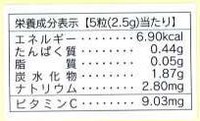 栄養成分表示【5粒(2.5g)当たり】
エネルギー………… 6.90kcal
たんぱく質………… 0.44g
脂　　質………… 0.05g
炭水化物………… 1.87g
ナトリウム………… 2.80mg
ビタミンC………… 9.03mg